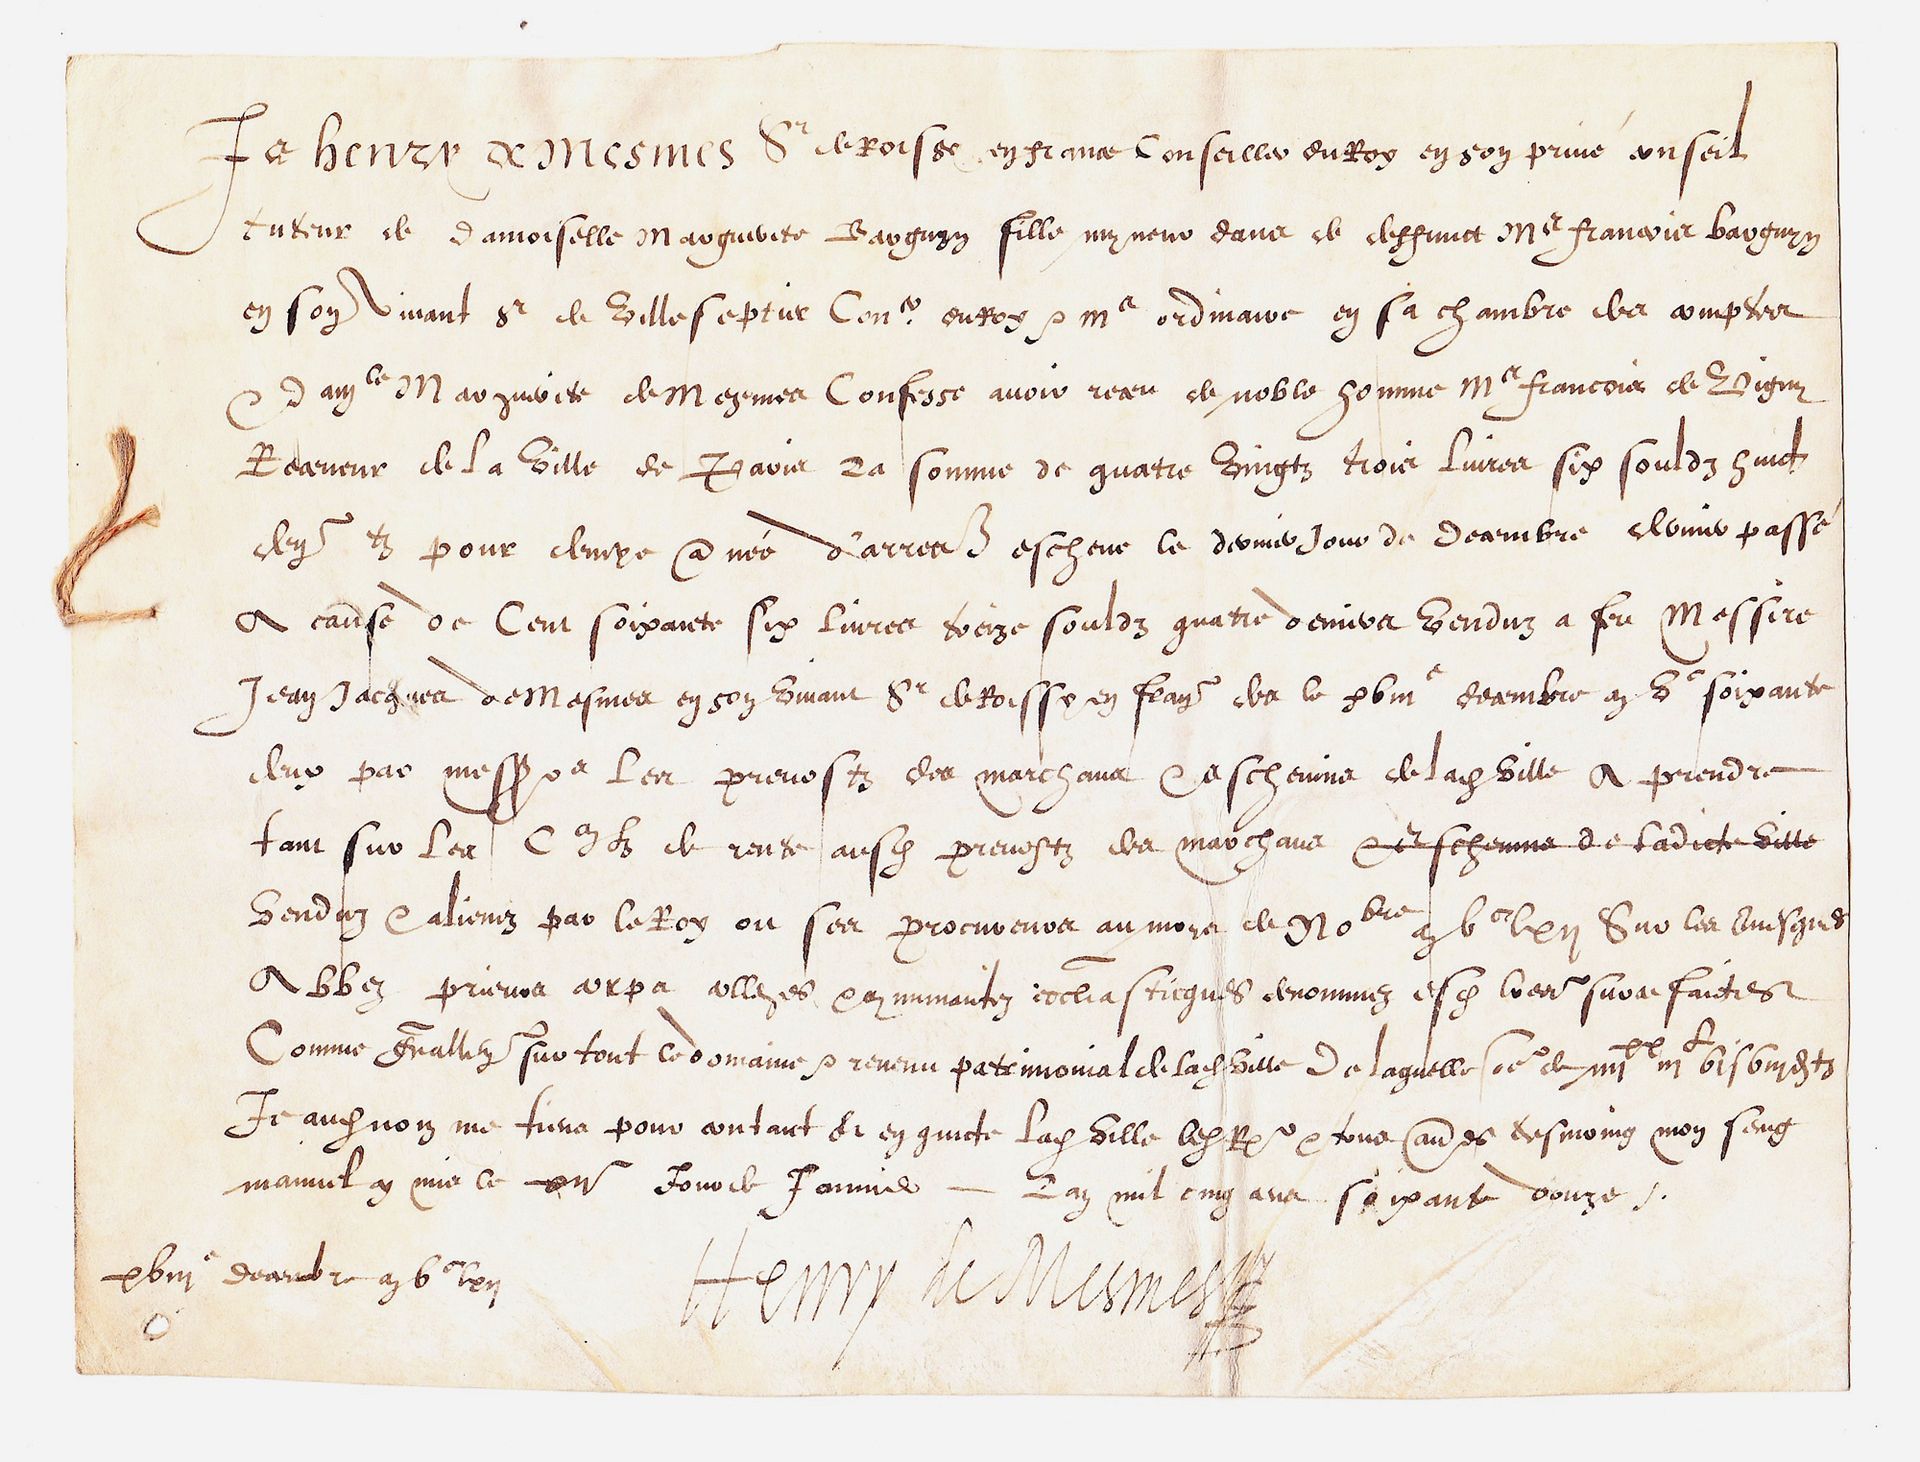 Je henry de Mesmes Sr de Roissy en france Conseiller du Roy en son privé conseil
tuteur de damoiselle Marguerite Barguyn fille myneur dans de deffunct Me francois barguyn
en son vivant Sr de Villeseptier Coner du Roy & Me ordinaire en sa chambre des comptes
& damle Marguerite de Mesmes Confesse avoir receu de noble homme Me francois de Vigny
Receveur de la Ville de Paris La somme de quatre Vingtz trois livres six souldz huict
denr tz pour demye année d'arrer escheue le dernier Jour de Decembre dernier passé
A cause de Cent soixante six livres treize souldz quatre deniers Venduz a feu Messire
Jean Jacques de Mesmes en son Vivant Sr de Roissy en franc des le xviiie decembre m Vc soixante
deux par messrs Les prevostz des marchans & eschevins de lad Ville A prendre
tant sur les de rente ausd prevostz des marchans & Eschevins de Ladicte Ville
Venduz & alienez par le Roy ou ses procureurs au moys de Nobre m vc lxii Sur les evesques
Abbez prieurs corps colleges & communaultez ecclesiasticques denommez esd lres sur ce faictes
Comme sur tout le domaine & revenu patrimonial de lad Ville De laquelle de iiiixx iii l vi s viii d tz
Je aud nom me tiens pour contant & en quicte lad Ville led Rr & tous autres tesmoing mon seing
manuel cy mis le Jour de Janvier — L'an mil cinq cens soixante douze
xviiie decembre m vc lxii
Henry de Mesmes